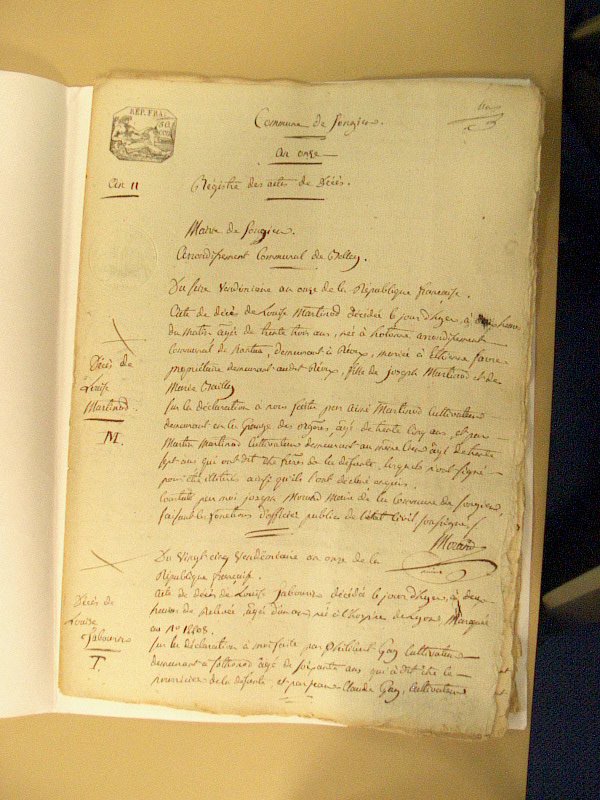 REP. FRA.
Commune de Songieu.
an onze
an 11
Régistre des actes de Décès.
Mairie de Songieu.
Arrondissement Communal de Belley.
Du seize Vendémiaire an onze de la République française.
Acte de décès de Louise Martinod décédée le jour d'hyer, à
du matin âgée de trente trois ans, née à hotonne arrondissement
Communal de nantua, demeurant à , mariée à Etienne favre
propriétaire demeurant audit , fille de joseph Martinod et de
Marie
Décès de
Louise
Martinod.
M.
sur la déclaration à nous faite par aimé Martinod cultivateur
demeurant en la Grange des , âgé de trente cinq ans, et par
Martin Martinod cultivateur demeurant au même lieu âgé de trente
sept ans qui ont dit être frères de la défunte, lesquels n'ont signé
pour être illitérés ainsi qu'ils l'ont déclaré enquis.
Constaté par moi joseph Morand Maire de la commune de Songieu,
faisant les fonctions d'officier public de l'état civil soussigné
Morand
Du vingt cinq Vendémiaire an onze de la
République française.
Décès de
Louise
Jabourin
T.
acte de décès de Louise Jabourin décédée le jour d'hyer, à deux
heures de relevée, âgée d'un an, née à l'hospice de Lyon, Marquée
au N.º 12808.
sur la déclaration à moi faite par Philibert Goy Cultivateur
demeurant à Sothonod âgé de soixante ans qui a dit être le
nourricier de la défunte et par jean Claude Goy, cultivateur